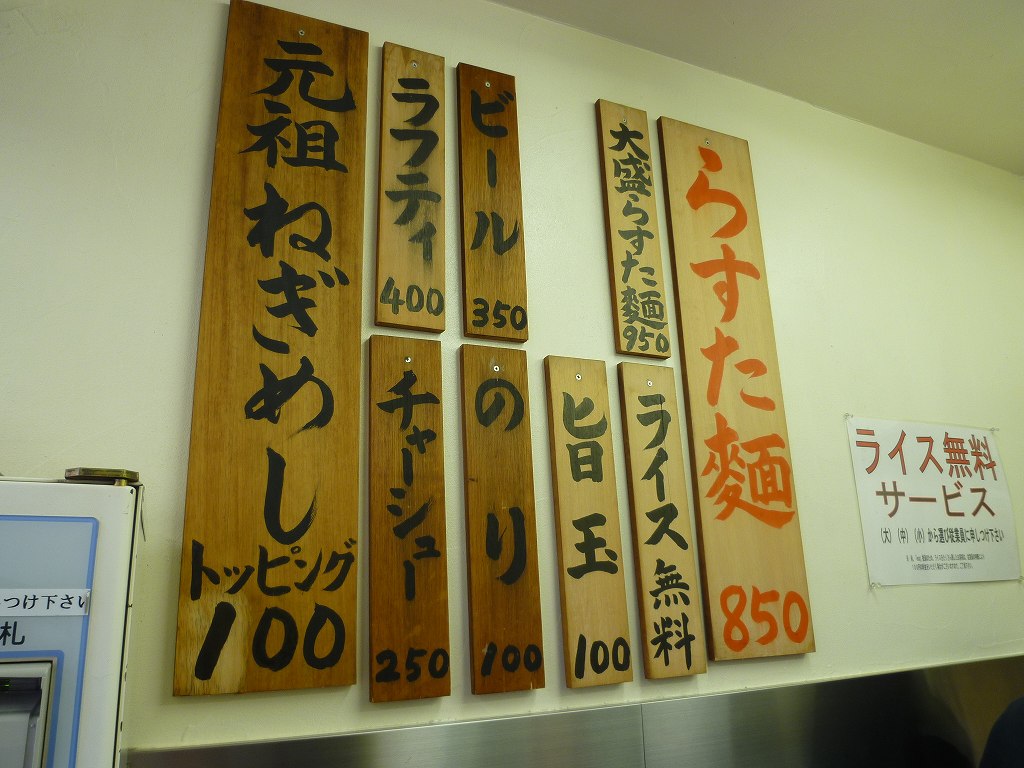 らすた麺
850
大盛らすた麺
950
ライス無料
旨玉
100
ビール
350
のり
100
ラフティ
400
チャーシュー
250
元祖ねぎめし
トッピング
100
ライス無料
サービス
(大)(中)(小)から選び従業員に申しつけ下さい
つけ下さい
札